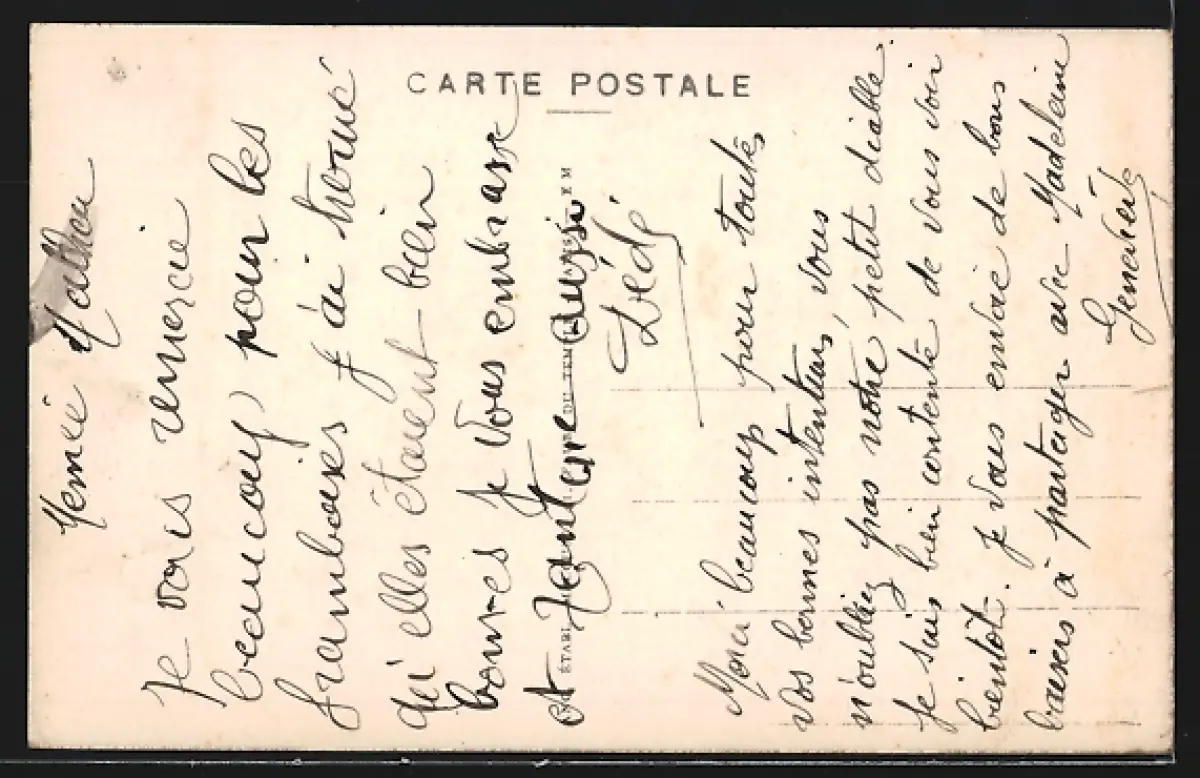 CARTE POSTALE
Mémée Mathieu
Je vous remercie
beaucoup pour les
framboises j'ai trouvé
qu'elles étaient bien
bonnes je vous embrasse
et
aussi
Dédé
Merci beaucoup pour toutes
vos bonnes intentions, vous
n'oubliez pas notre petit diable
Je suis bien contente de vous voir
bientôt. Je vous envoie de bons
baisers à partager avec Madeleine
Geneviève